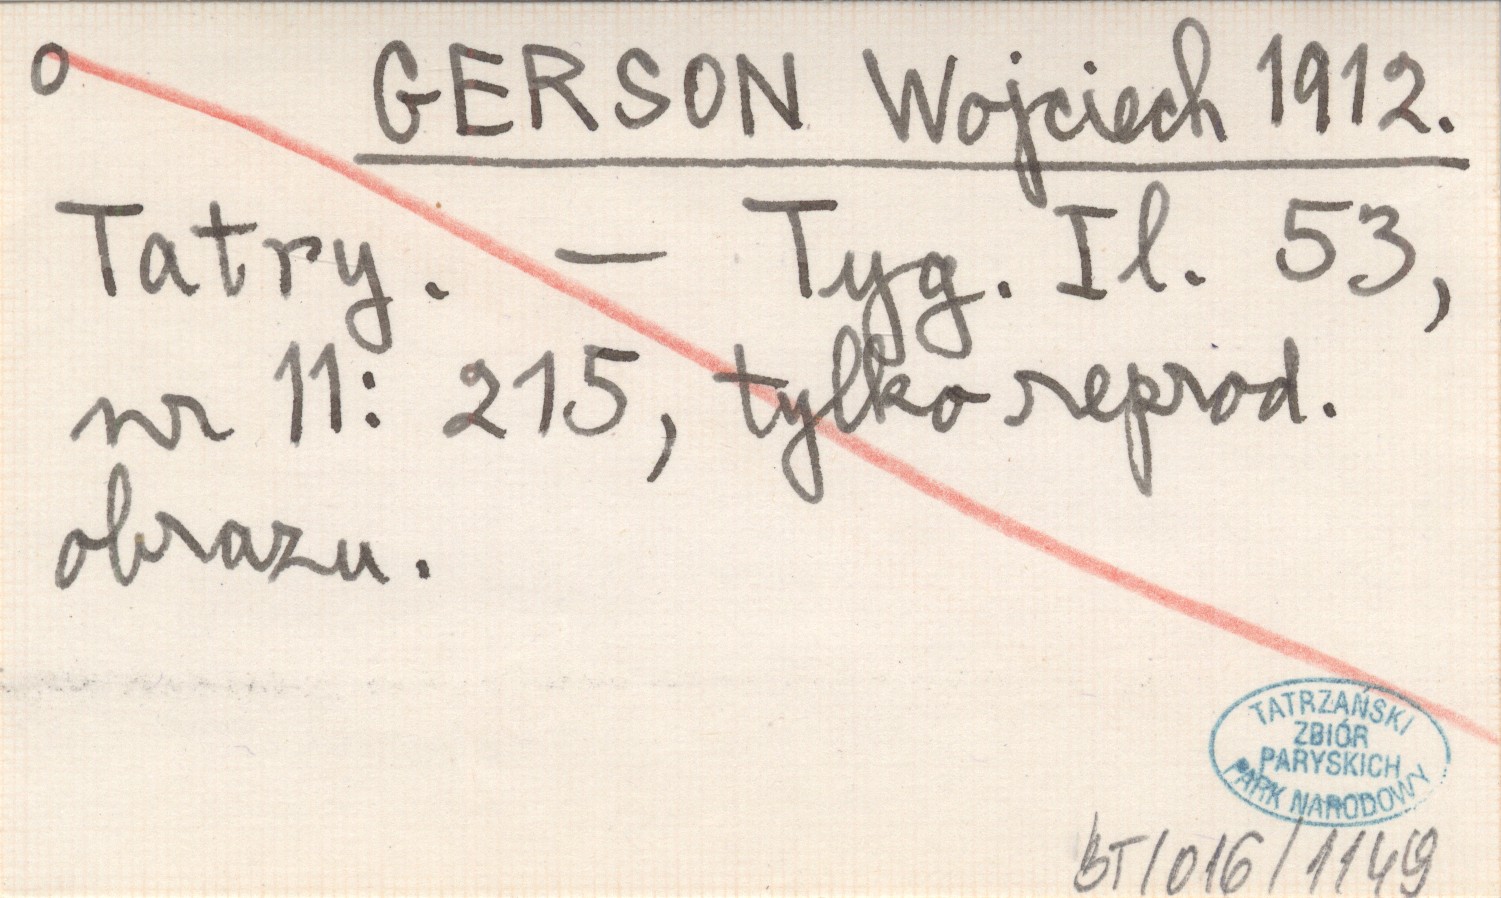 o GERSON Wojciech 1912.
Tatry. — Tyg. Il. 53,
nr 11: 215, tylko reprod.
obrazu.
TATRZAŃSKI
ZBIÓR
PARYSKICH
PARK NARODOWY
BT/016/1149